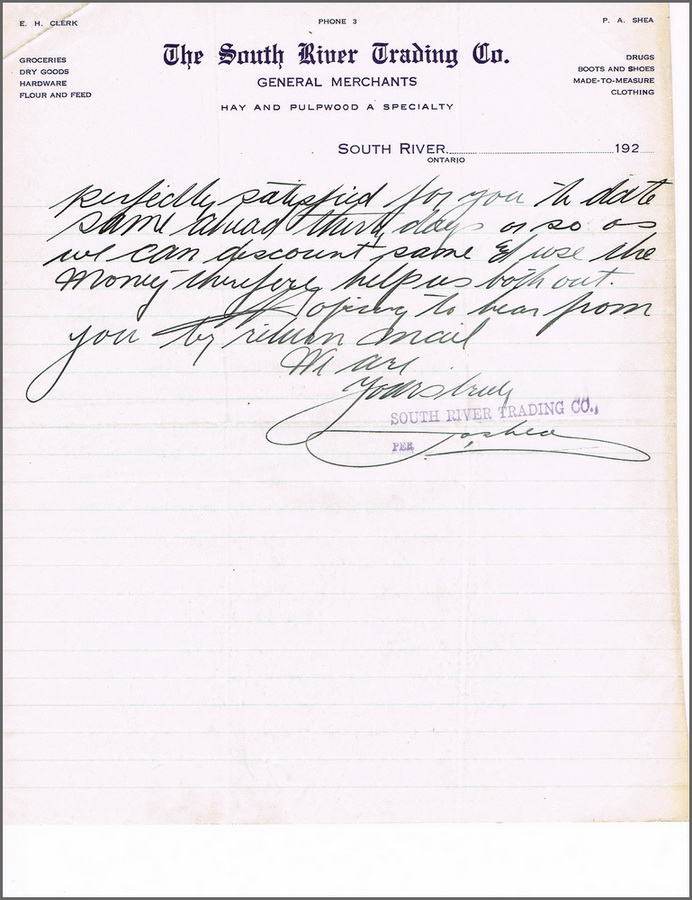 E. H. CLERK PHONE 3 P. A. SHEA
The South River Trading Co.
GENERAL MERCHANTS
HAY AND PULPWOOD A SPECIALTY
GROCERIES
DRY GOODS
HARDWARE
FLOUR AND FEED
DRUGS
BOOTS AND SHOES
MADE-TO-MEASURE
CLOTHING
SOUTH RIVER, 192
ONTARIO
perfectly satisfied for you to date
same ahead thirty days or so as
we can discount same & use the
money therefore help us both out.
Hoping to hear from
you by return mail
We are
Yours truly
SOUTH RIVER TRADING CO.,
PER